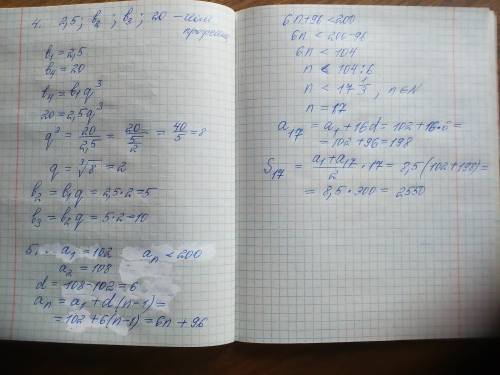 4. 2,5; b₂; b₃; 20 – геом. прогрессия
b₁ = 2,5
b₄ = 20
b₄ = b₁q³
20 = 2,5q³
q³ = 20/2,5 = 20/(5/2) = 40/5 = 8
q = ∛8 = 2
b₂ = b₁q = 2,5·2 = 5
b₃ = b₂q = 5·2 = 10
5. a₁ = 102 aₙ < 200
a₂ = 108
d = 108-102 = 6
aₙ = a₁ + d(n-1) =
= 102 + 6(n-1) = 6n + 96
6n + 96 < 200
6n < 200-96
6n < 104
n < 104:6
n < 17 1/3, n∈N
n = 17
a₁₇ = a₁ + 16d = 102 + 16·6 =
= 102 + 96 = 198
S₁₇ = (a₁ + a₁₇)/2 · 17 = 8,5(102+198) =
= 8,5·300 = 2550